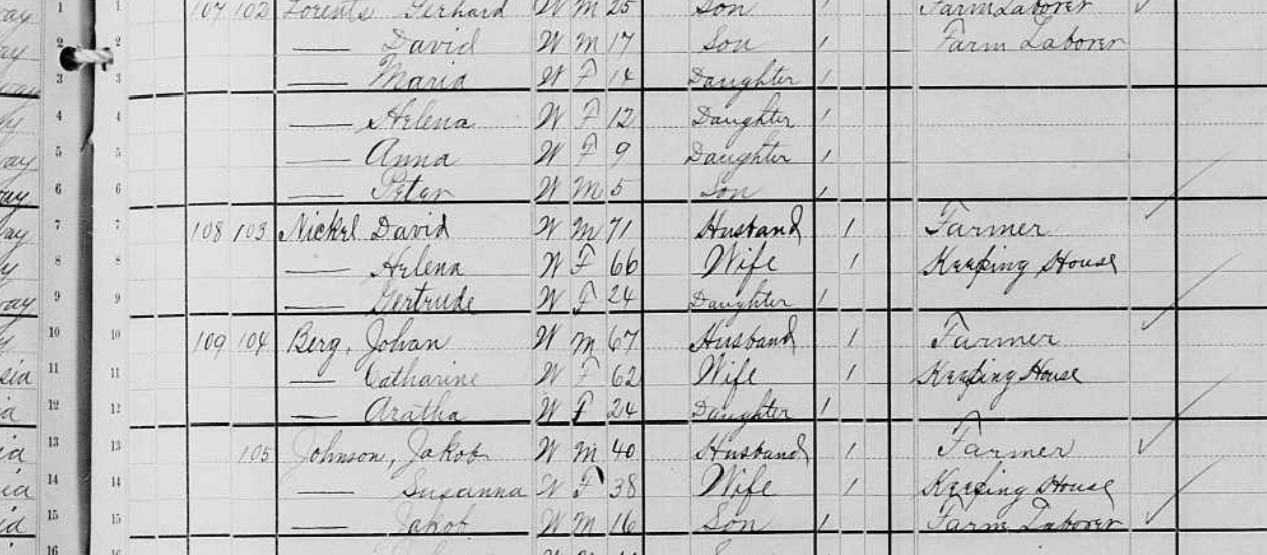 1 1 107 102 Lorents Gerhard W M 25 Son 1 Farm Laborer
2 2 —— David W M 17 Son 1 Farm Laborer
3 3 —— Maria W F 14 Daughter 1
4 4 —— Helena W F 12 Daughter 1
5 5 —— Anna W F 9 Daughter 1
6 6 —— Peter W M 5 Son 1
7 7 108 103 Nickel David W M 71 Husband 1 Farmer
8 8 —— Helena W F 66 Wife 1 Keeping House
9 9 —— Gertrude W F 24 Daughter 1
10 10 109 104 Berg, Johan W M 67 Husband 1 Farmer
11 11 —— Catharine W F 62 Wife 1 Keeping House
12 12 —— Aratha W F 24 Daughter 1
13 13 105 Johnson, Jakob W M 40 Husband 1 Farmer
14 14 —— Susanna W F 38 Wife 1 Keeping House
15 15 —— Jakob W M 16 Son 1 Farm Laborer
16 16